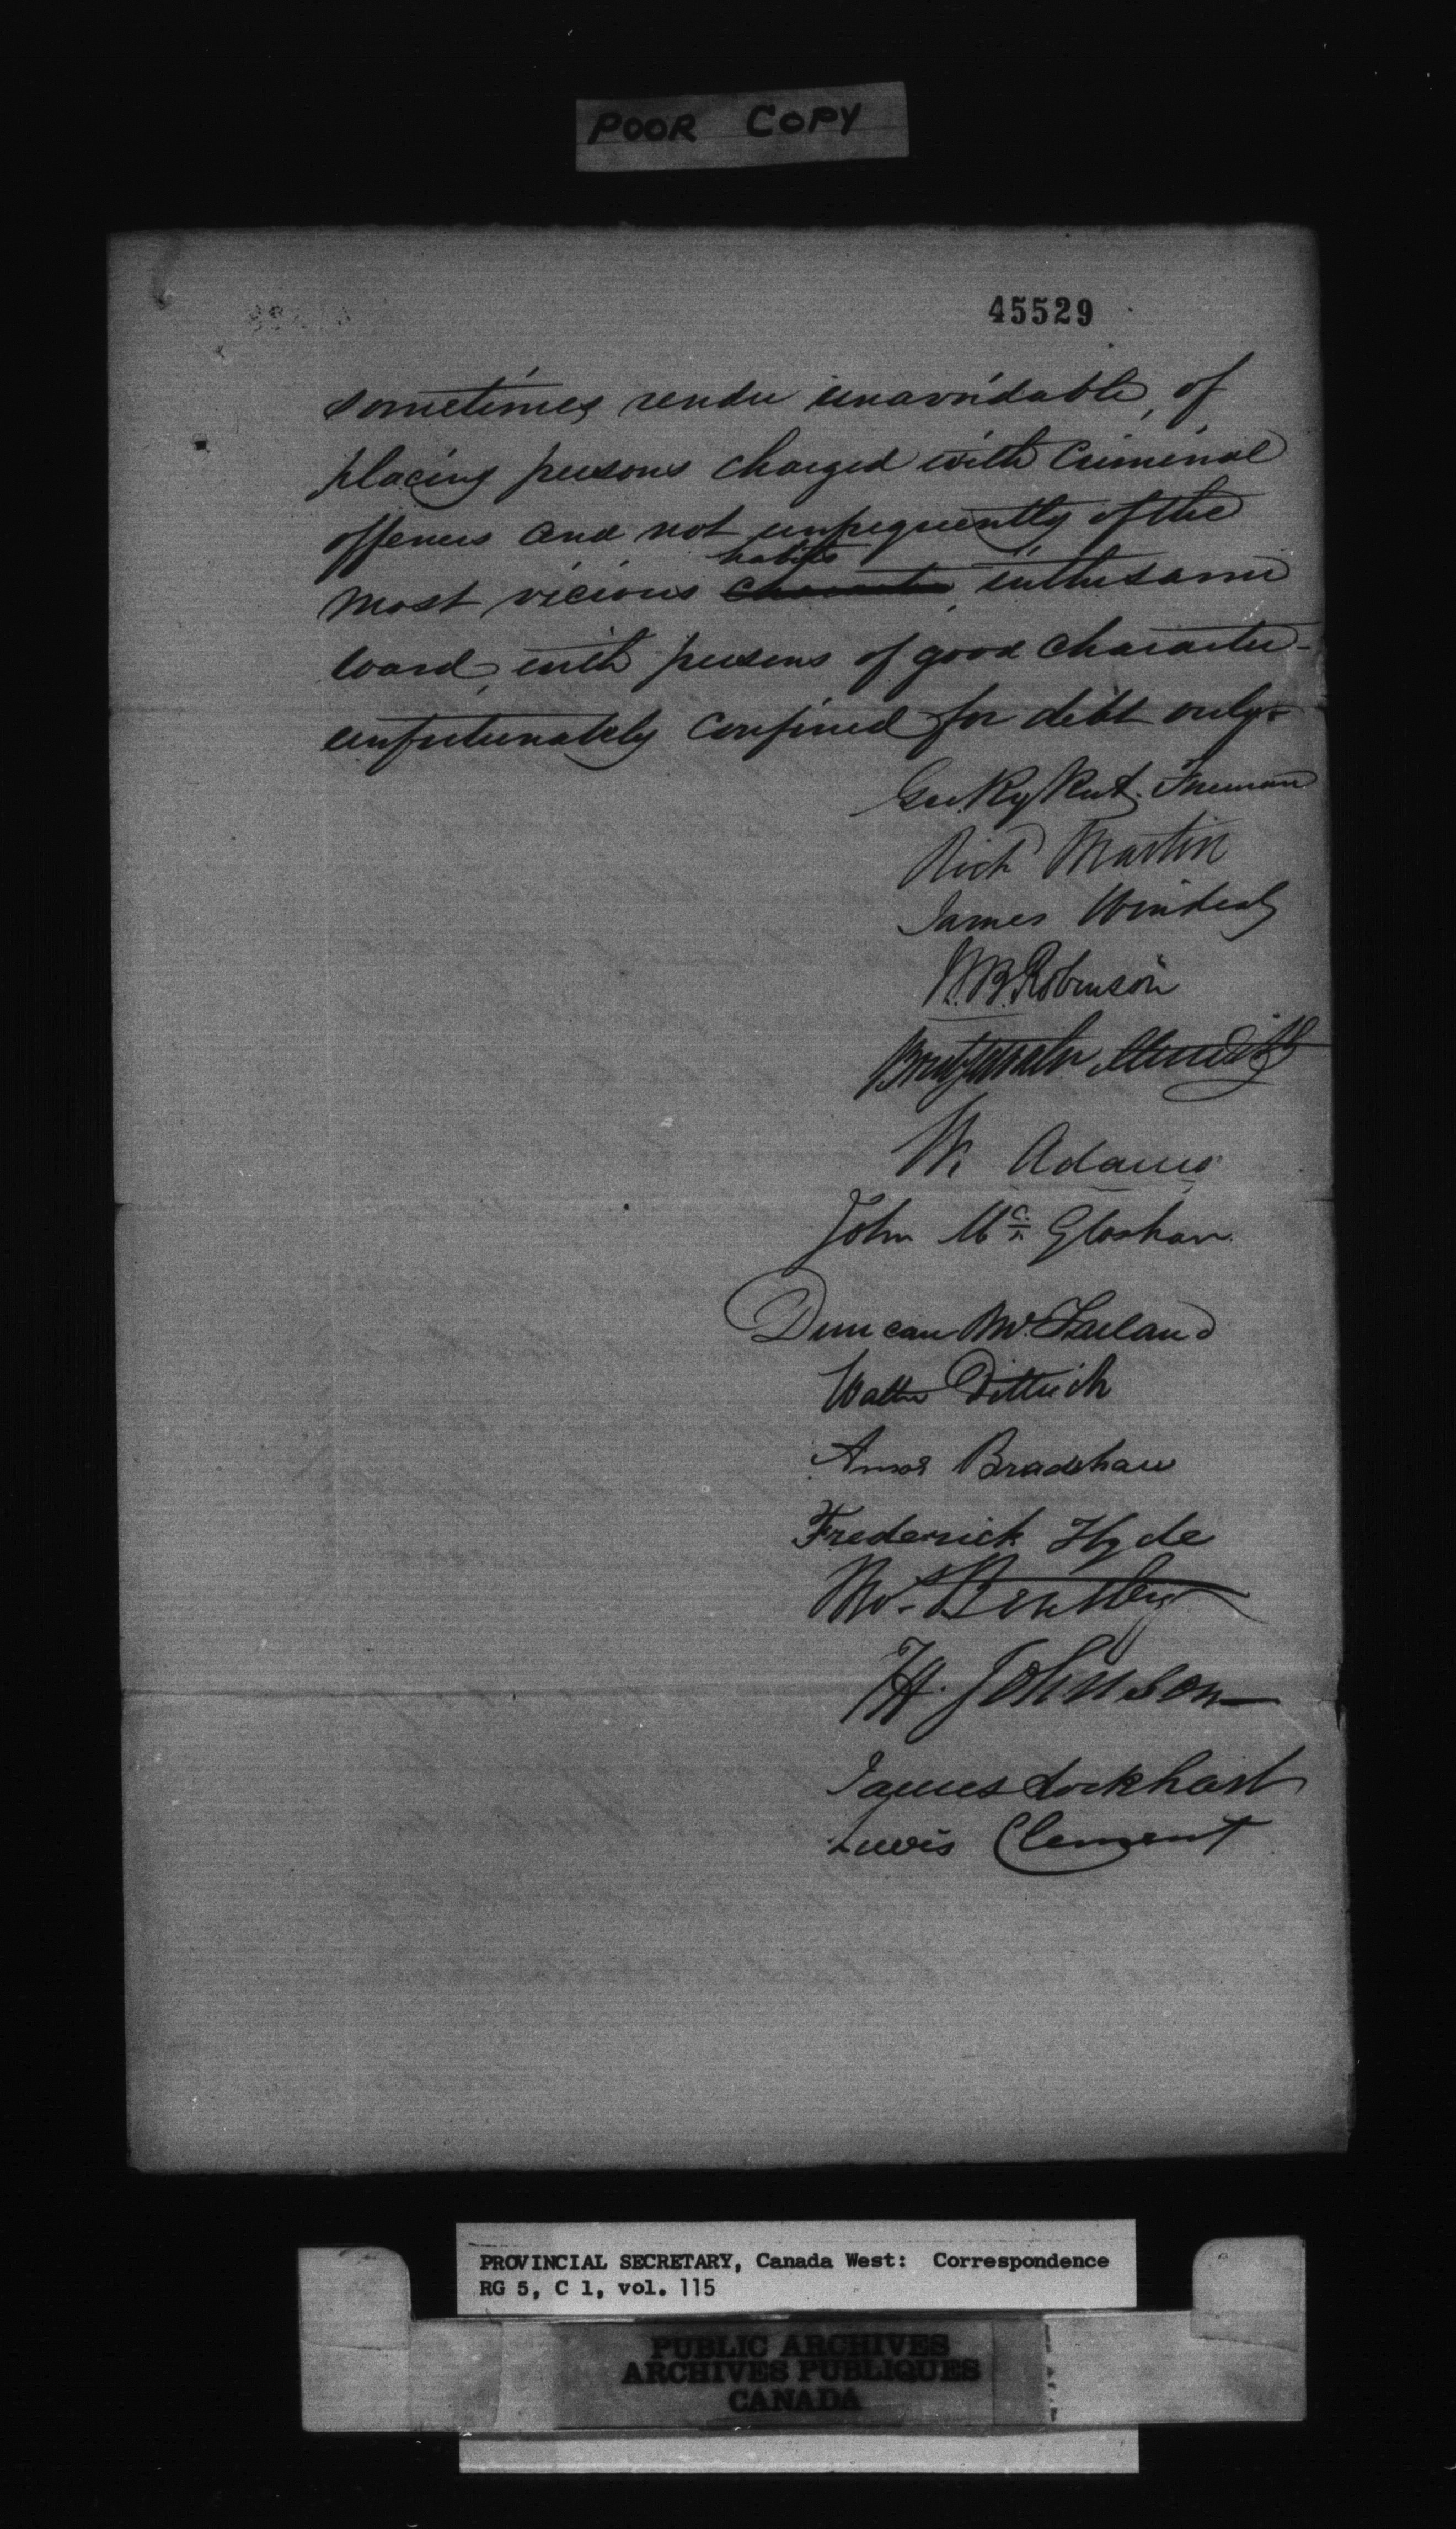 POOR COPY
45529
sometimes render unavoidable, of
placing persons charged with Criminal
offences and not unfrequently of the
habits
most vicious character, in the same
ward, with persons of good character
unfortunately confined for debt only.
Foreman
Rich Martin
James
W.B. Robinson
W. Adams
John Mc Gloshan
Duncan McFarland
Walter Dittrick
Amos Bradshaw
Frederick Hyde
H. Johnson
James Lockhart
Lewis Clement
PROVINCIAL SECRETARY, Canada West: Correspondence
RG 5, C 1, vol. 115
PUBLIC ARCHIVES
ARCHIVES PUBLIQUES
CANADA